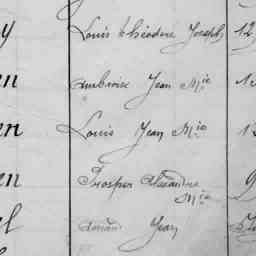 y Louis théodore Joseph 12
en Ambroise Jean Mie 1
en Louis Jean Mie 1
en Prosper Alexandre
Mie
l Jean